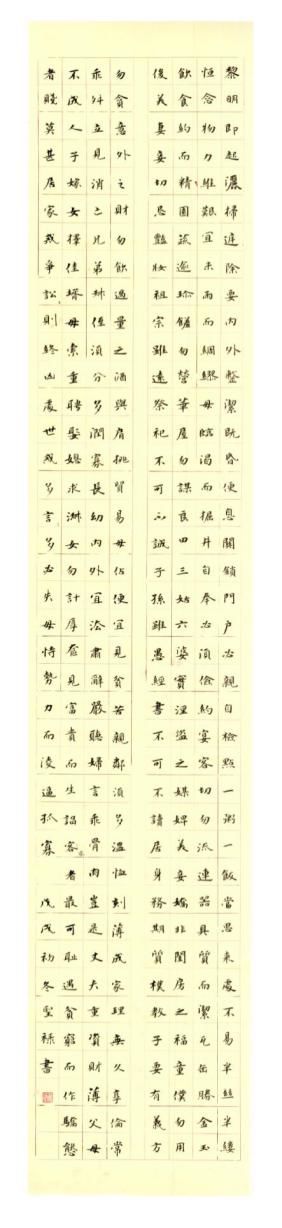 黎明即起灑掃庭除要內外整潔既昏便息關鎖門戶必親自檢點一粥一飯當思來處不易半絲半縷
恒念物力維艱宜未雨而綢繆毋臨渴而掘井自奉必須儉約宴客切勿流連器具質而潔瓦缶勝金玉
飲食約而精園蔬逾珍饈勿營華屋勿謀良田三姑六婆實淫盜之媒婢美妾嬌非閨房之福童僕勿用
俊美妻妾切忌豔妝祖宗雖遠祭祀不可不誠子孫雖愚經書不可不讀居身務期質樸教子要有義方
勿貪意外之財勿飲過量之酒與肩挑貿易毋佔便宜見貧苦親鄰須多溫恤刻薄成家理無久享倫常
乖舛立見消亡兄弟叔侄須分多潤寡長幼內外宜法肅辭嚴聽婦言乖骨肉豈是丈夫重資財薄父母
不成人子嫁女擇佳壻毋索重聘娶媳求淑女勿計厚奩見富貴而生諂容者最可恥遇貧窮而作驕態
者賤莫甚居家戒爭訟則終凶處世戒多言多必失毋恃勢力而凌逼孤寡
戊戌初冬聖祿書